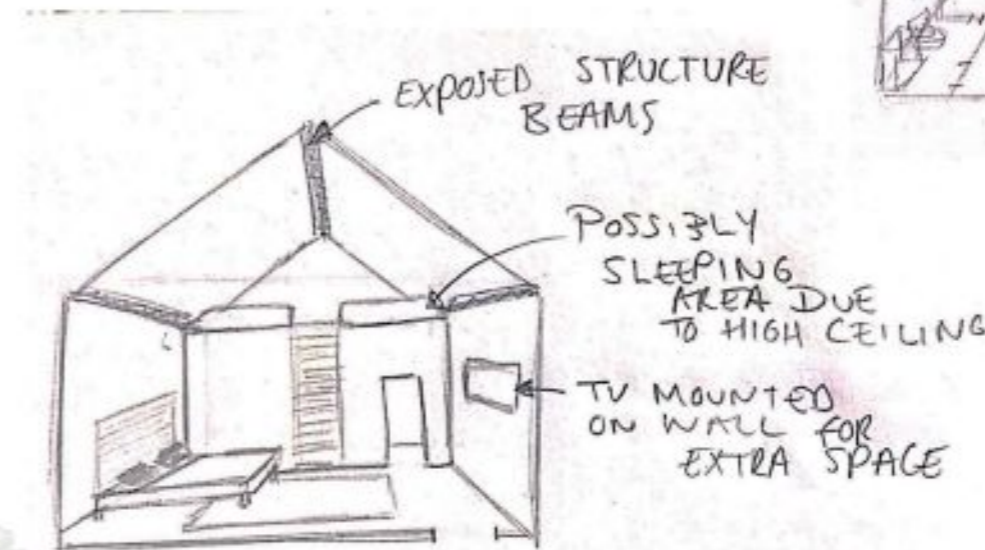 EXPOSED STRUCTURE
BEAMS
POSSIBLY
SLEEPING
AREA DUE
TO HIGH CEILING
TV MOUNTED
ON WALL FOR
EXTRA SPACE